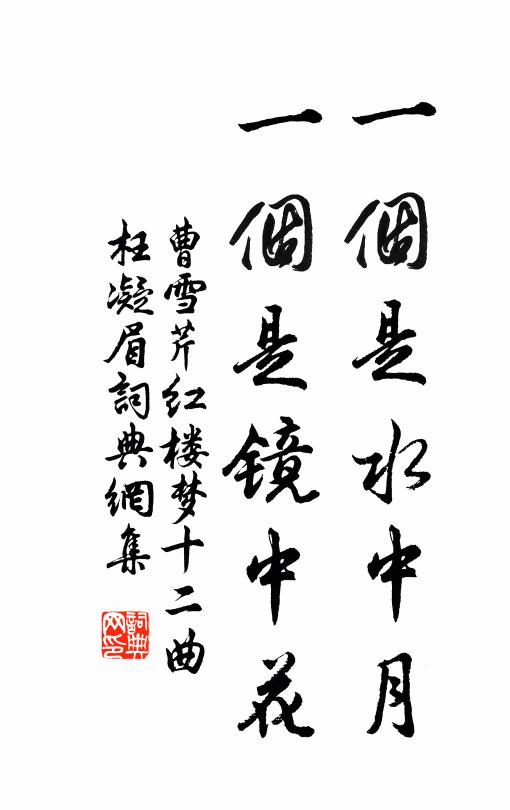 一個是水中月
一個是鏡中花
曹雪芹红楼梦十二曲
枉凝眉詞典網集
詞典
网印